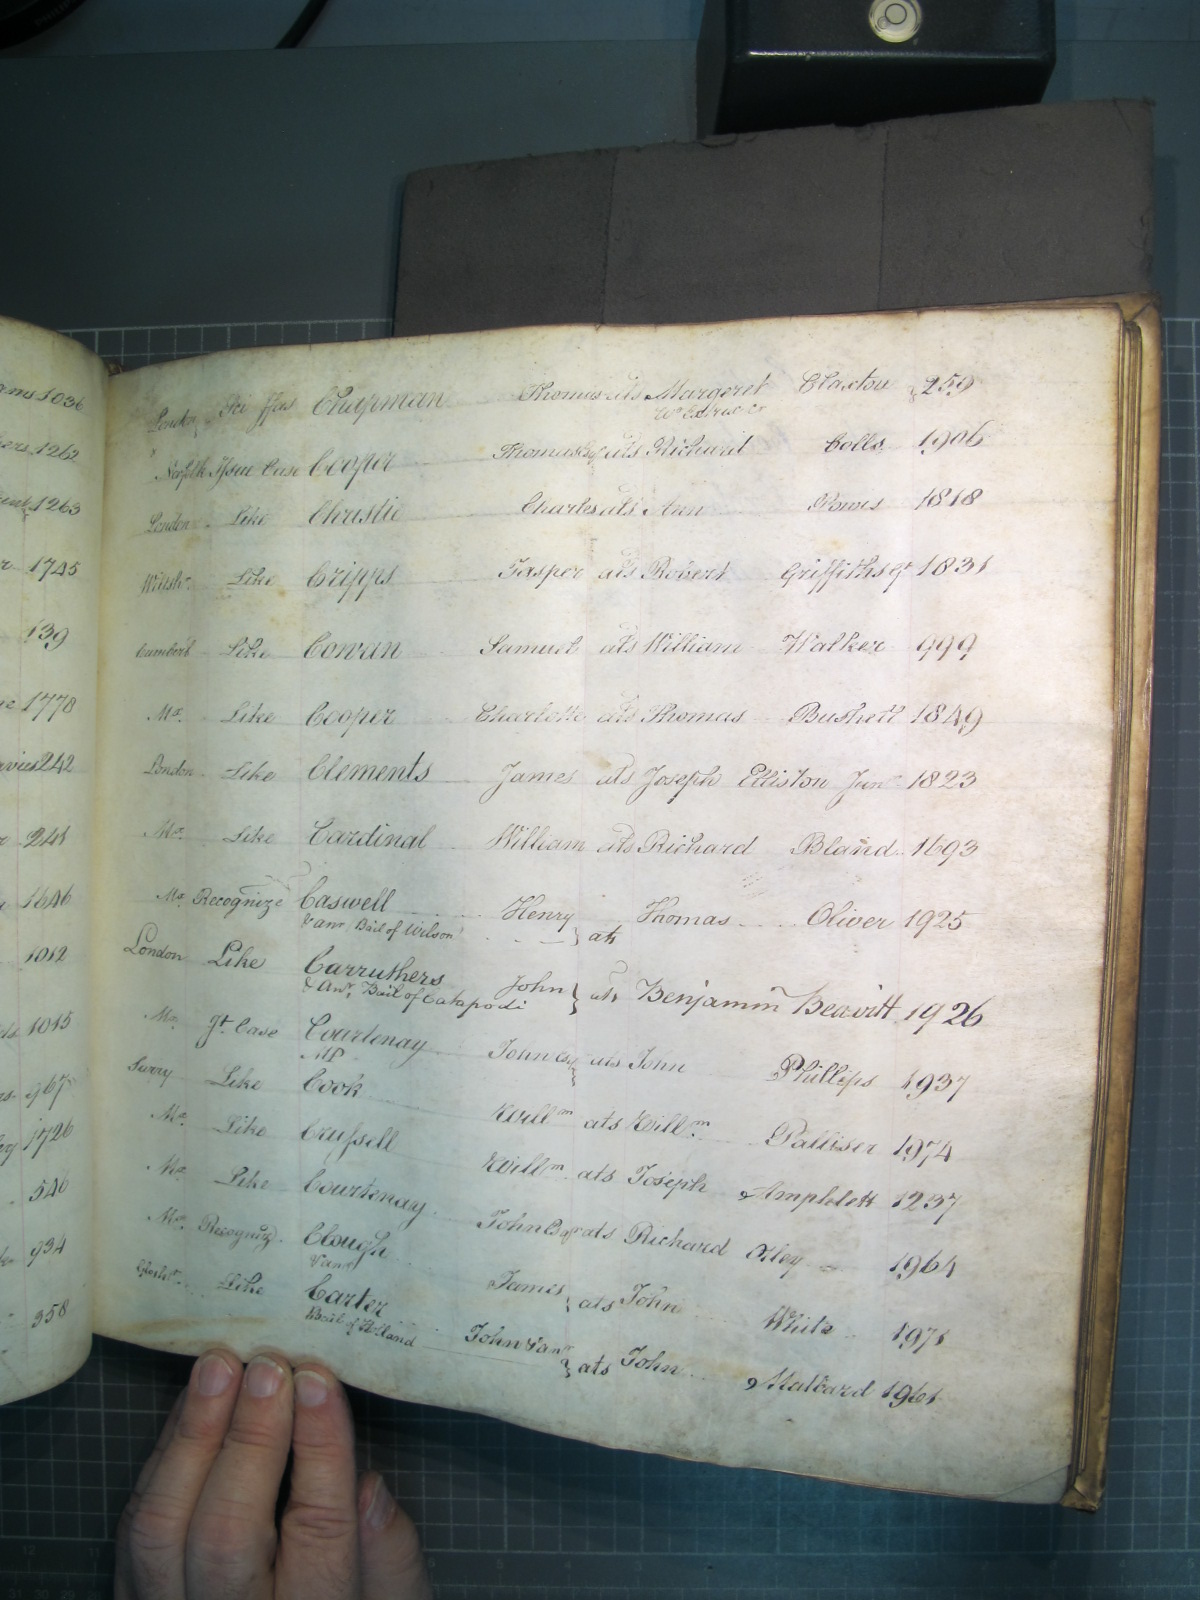 London Sci ffas Chapman Thomas ats Margeret Claxton 259
Norfolk Issue Case Cooper Thomas Esq ats Richard Colls 1906
London Like Christie Charles ats Ann 1818
Wiltsh.. Like Cripps Jasper ats Robert Griffiths 1831
Cumberl.. Like Cowan Samuel ats William Walker 999
Mx. Like Cooper Charlotte ats Thomas Bushell 1849
London Like Clements James ats Joseph Elliston Junr 1823
Mx. Like Cardinal William ats Richard Bland 1693
Mx. Recognize Caswell Henry ats Thomas Oliver 1925
& anr. Bail of Wilson
London Like Carruthers John ats Benjamin Beavitt 1926
& Anr. Bail of Catapodi
Mx. Jt. Case Courtenay John Esq ats John Phillips 1937
MP
Surry Like Cook Willm ats Willm. Palliser 1974
Mx. Like Crussell Willm ats Joseph Amphlett 1237
Mx. Like Courtenay John Esqr ats Richard Oxley 1964
Mx. Recogniz. Clough James ats John White 1971
& anr
Like Carter John & anr ats John Malbard 1961
Bail of Holland
1036
1262
1263
1745
139
1778
242
241
1646
1012
1015
967
1726
546
934
358